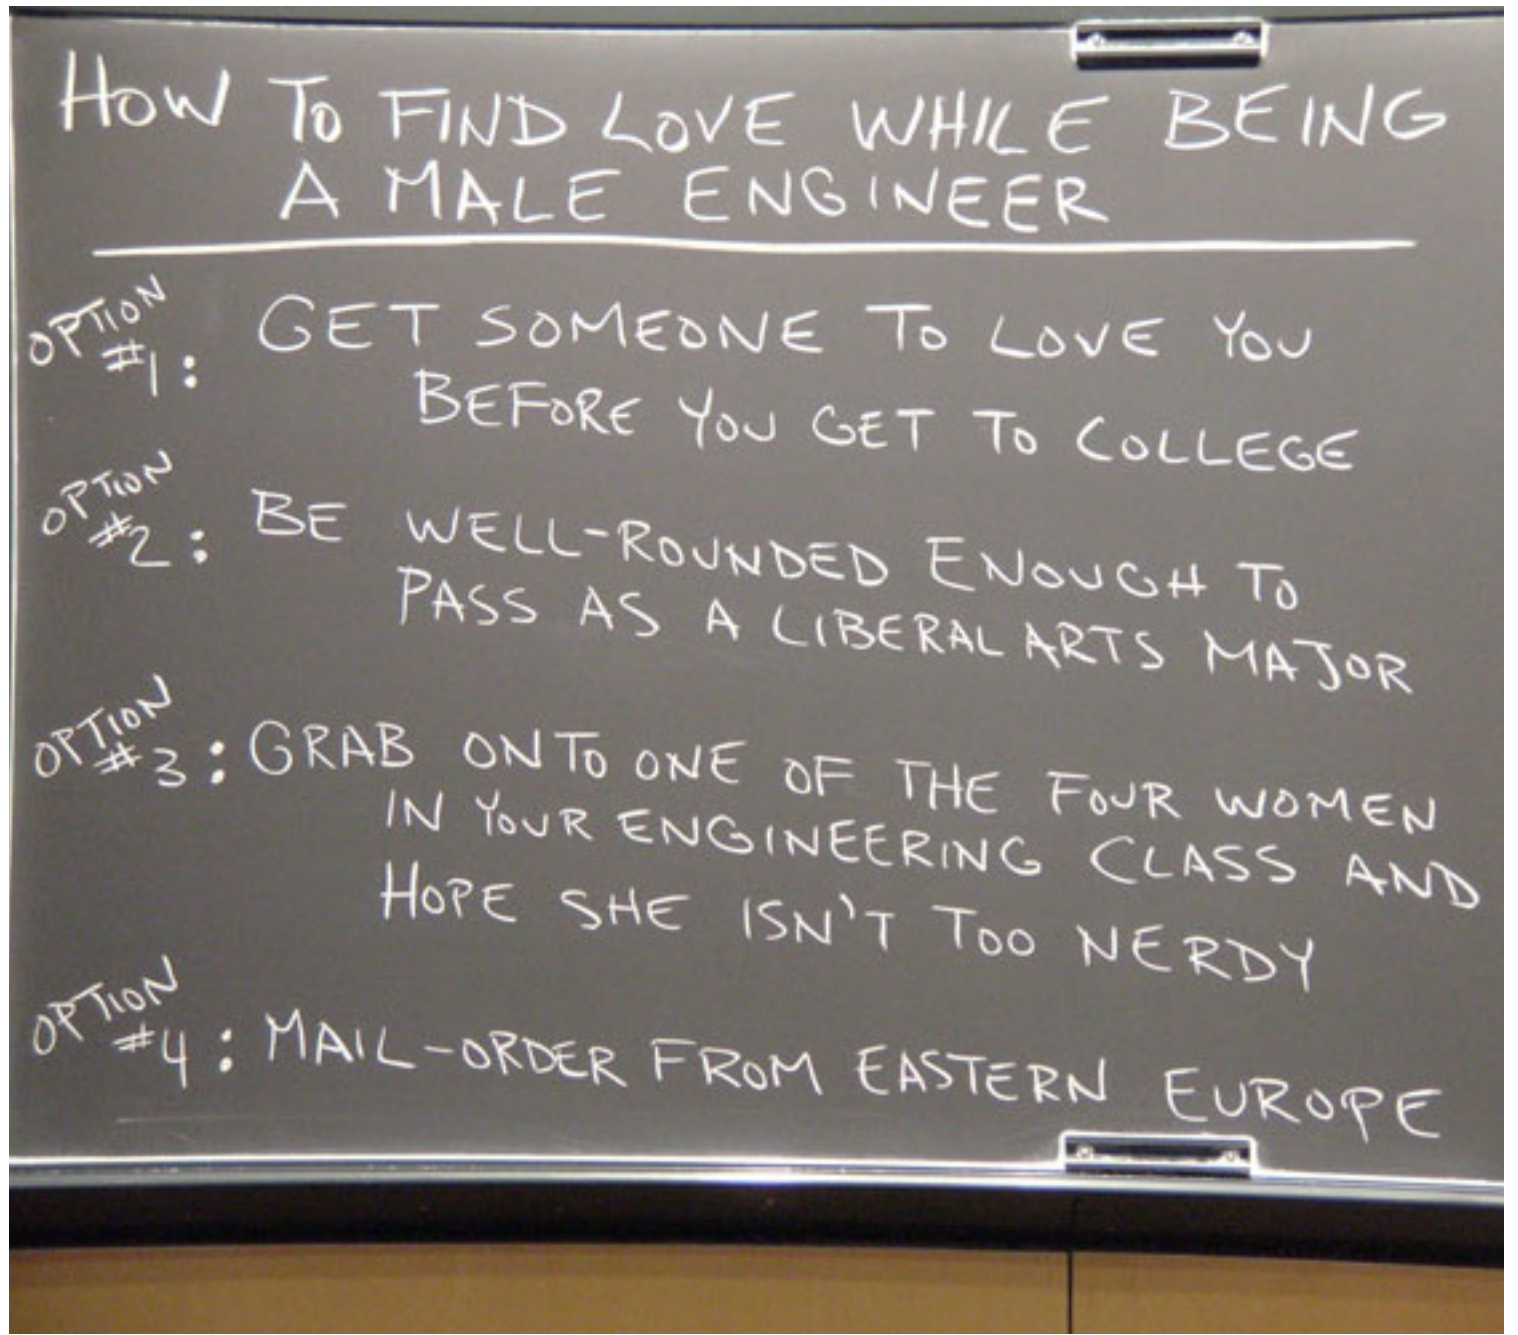 HOW TO FIND LOVE WHILE BEING
A MALE ENGINEER
OPTION #1: GET SOMEONE TO LOVE YOU
BEFORE YOU GET TO COLLEGE
OPTION #2: BE WELL-ROUNDED ENOUGH TO
PASS AS A LIBERAL ARTS MAJOR
OPTION #3: GRAB ONTO ONE OF THE FOUR WOMEN
IN YOUR ENGINEERING CLASS AND
HOPE SHE ISN'T TOO NERDY
OPTION #4: MAIL-ORDER FROM EASTERN EUROPE